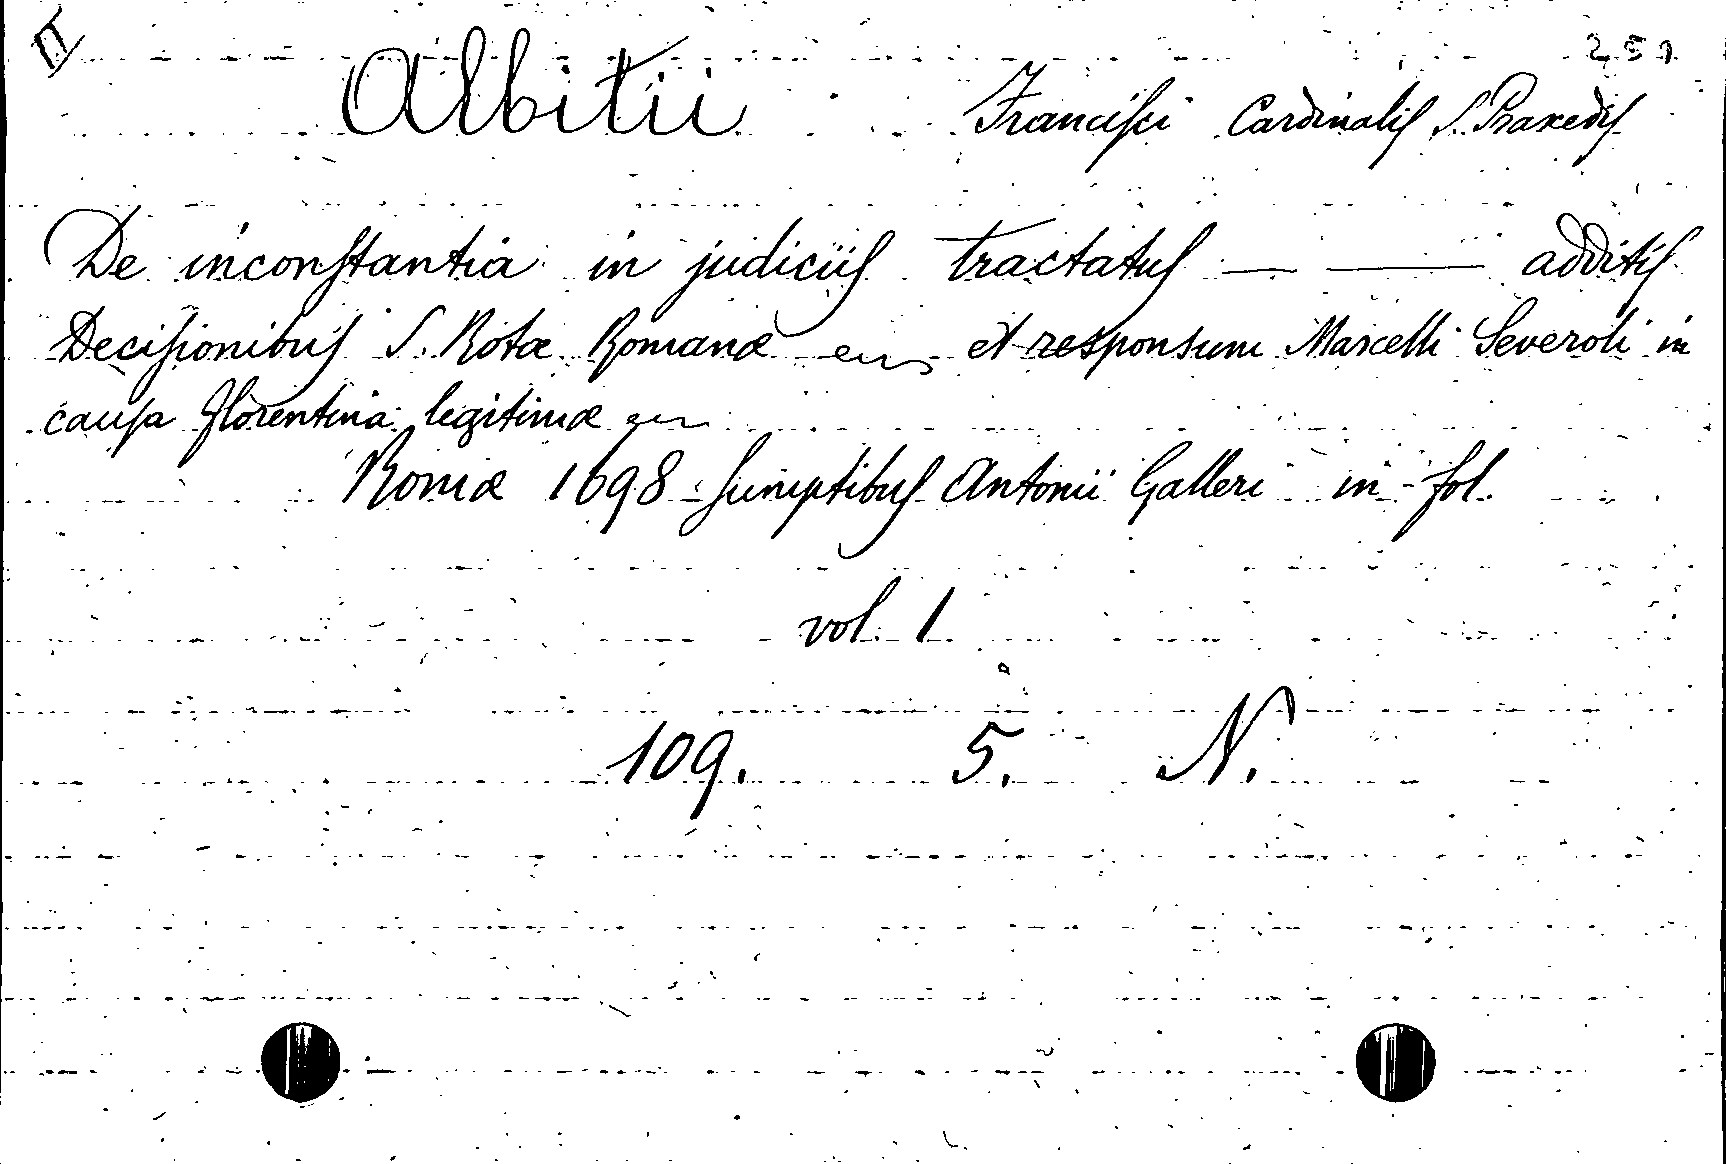 259
Albitii Francisci Cardinalis S. Praxedis
De inconstantia in judiciis tractatus — — additis
Decisionibus S. Rotæ Romanæ et responsum Marcelli Severoli in
causa florentina legitimæ
Romæ 1698 sumptibus Antonii Galleri in fol.
vol. 1
109. 5. N.